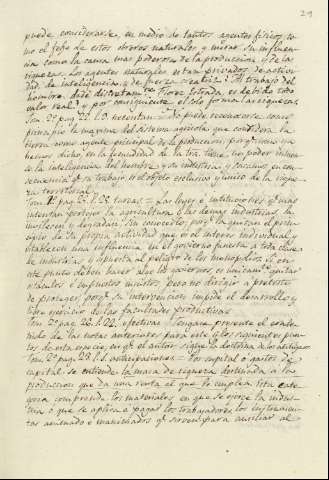 29
puede considerarse, en medio de tantos agentes físicos, co
mo el gefe de estos obreros naturales y mirar su influen
cia como la causa mas poderosa de la produccion y de las
riquezas. Los agentes naturales estan privados de activi
dad, de inteligencia y de fuerza creatriz. Al trabajo del
hombre dice Destutt tracy Flores Estrada es debido todo
valor real y por consiguiente el solo forma las riquezas.
Tom. 2º pag. 22. l. 9. necesitan = No puede reconocerse como
principio la maxima del sistema agricola que considera la
tierra como agente principal de la produccion, porq. como ya
hemos dicho, en la fecundidad de la tierra no poder
la inteligencia del hombre y su industria, y
secuencia, su trabajo es el objeto esclusivo y unico de la rique
za territorial.
Tom. 2º pag. 25. l. 22. turas = Las leyes é instituciones q. mas
intentan proteger la agricultura y las demas industrias, la
molestan y degradan sin conocerlo, porq. la quitan el princi
pio de su propia actividad que es el interes individual y
establecen una influencia en el govierno funesta a toda clase
de industrias, y expuesta al peligro de los monopolios. En
este punto deben hacer algo los goviernos es unicam.te quitar
obstaculos é impuestos injustos, pero no dirigir a pretesto
de proteger, porq. su intervencion impide el desarrollo y
libre egercicio de las facultades productivas.
Tom. 2º pag. 26. l. 22. efectivas = Tengase presente el conte
nido de las notas anteriores para este y los siguientes pun
tos de esta especie, en q. el autor sigue la doctrina de los antiguos
Tom. 2º pag. 29. l. 5. anticipaciones = Por capital ó gastos de
capital se entiende la masa de riqueza destinada a la
produccion que da una renta al que lo emplea. Esta cate
goria comprende los materiales en que se egerce la indus
tria ó que se aplica a pagar los trabajadores, los instrumen
tos animados é inanimados q. sirven para auxiliar al